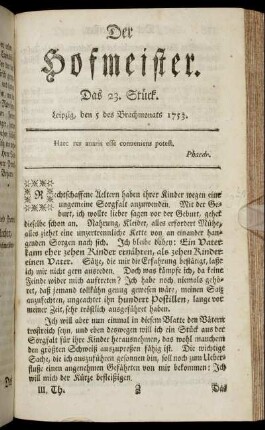 Der
Hofmeister.
Das 23. Stück.
Leipzig, den 5 des Brachmonats 1753.
Haec res
esse
potest.
Phaedr.
Rechtschaffene Aeltern haben ihrer Kinder wegen eine
ungemeine Sorgfalt anzuwenden. Mit der Ge-
burt, ich wollte lieber sagen vor der Geburt, gehet
dieselbe schon an. Nahrung, Kleider, alles erfordert Mühe,
alles ziehet eine unzertrennliche Kette von an einander han-
genden Sorgen nach sich. Ich bleibe dabey: Ein Vater
kann eher zehen Kinder ernähren, als zehen Kinder
einen Vater. Sätze, die mir die Erfahrung bestätiget, lasse
ich mir nicht gern ausreden. Doch was kämpfe ich, da keine
Feinde wider mich auftreten? Ich habe noch niemals gehö-
ret, daß jemand tollkühn genug gewesen wäre, meinen Satz
anzufechten, ungeachtet ihn hundert Postillen, lange vor
meiner Zeit, sehr tröstlich ausgeführet haben.
Ich will aber nun einmal in diesem Blatte den Vätern
trostreich seyn, und eben deswegen will ich ein Stück aus der
Sorgfalt für ihre Kinder herausnehmen, das wohl manchem
den größten Schweiß auszupressen fähig ist. Die wichtige
Sache, die ich auszuführen gesonnen bin, soll noch zum Ueber-
flusse einen angenehmen Gefährten von mir bekommen: Ich
will mich der Kürze befleißigen.
III. Th.
Z
Das